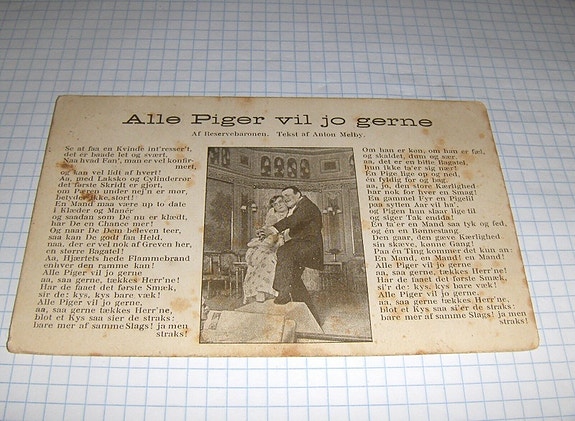 Alle Piger vil jo gerne
Af Reservebaronen. Tekst af Anton Melby.
Se at faa en Kvinde int'resser't,
det er baade let og svært.
Naa hvad Fan', man er vel konfir-
mert,
og kan vel lidt af hvert!
Aa, med Laksko og Cylinderrør
det første Skridt er gjort,
om Pæren under nej'n er mør,
betyder ikke stort!
En Mand maa være up to date
i Klæder og Manér
og saadan som De nu er klædt,
har De en Chance mer!
Og naar De Dem beløven teer,
saa kan De godt faa Held,
naa, der er vel nok af Greven her,
en større Bagatel!
Aa, Hjærtets hede Flammebrand
enhver den ramme kan!
Alle Piger vil jo gerne,
aa, saa gerne, tækkes Herr'ne!
Har de faaet det første Smæk,
si'r de: kys, kys bare væk!
Alle Piger vil jo gerne,
aa, saa gerne tækkes Herr'ne,
blot et Kys saa si'er de straks:
bare mer af samme Slags! ja men
straks!
Om han er køn, om han er fæl,
og skaldet, dum og sær,
aa, det er en bitte Bagatel,
hun ikke ta'er sig nær!
En Pige lige op og ned,
én fyldig for og bag,
aa, jo, den store Kærlighed
har nok for hver en Smag!
En gammel Fyr en Pigelil
paa sytten Aar vil ta',
og Pigen hun slaar lige til
og siger Tak endda!
En ta'er en Mand saa tyk og fed,
og én en Bønnestang.
Den gaar, den gæve Kærlighed
sin skæve, kønne Gang!
Paa én Ting kommer det kun an:
En Mand, en Mand! en Mand!
Alle Piger vil jo gerne,
aa, saa gerne, tækkes Herr'ne!
Har de faaet det første Smæk,
si'r de: kys, kys bare væk!
Alle Piger vil jo gerne,
aa, saa gerne tækkes Herr'ne,
blot et Kys saa si'er de straks:
bare mer af samme Slags! ja men
straks!